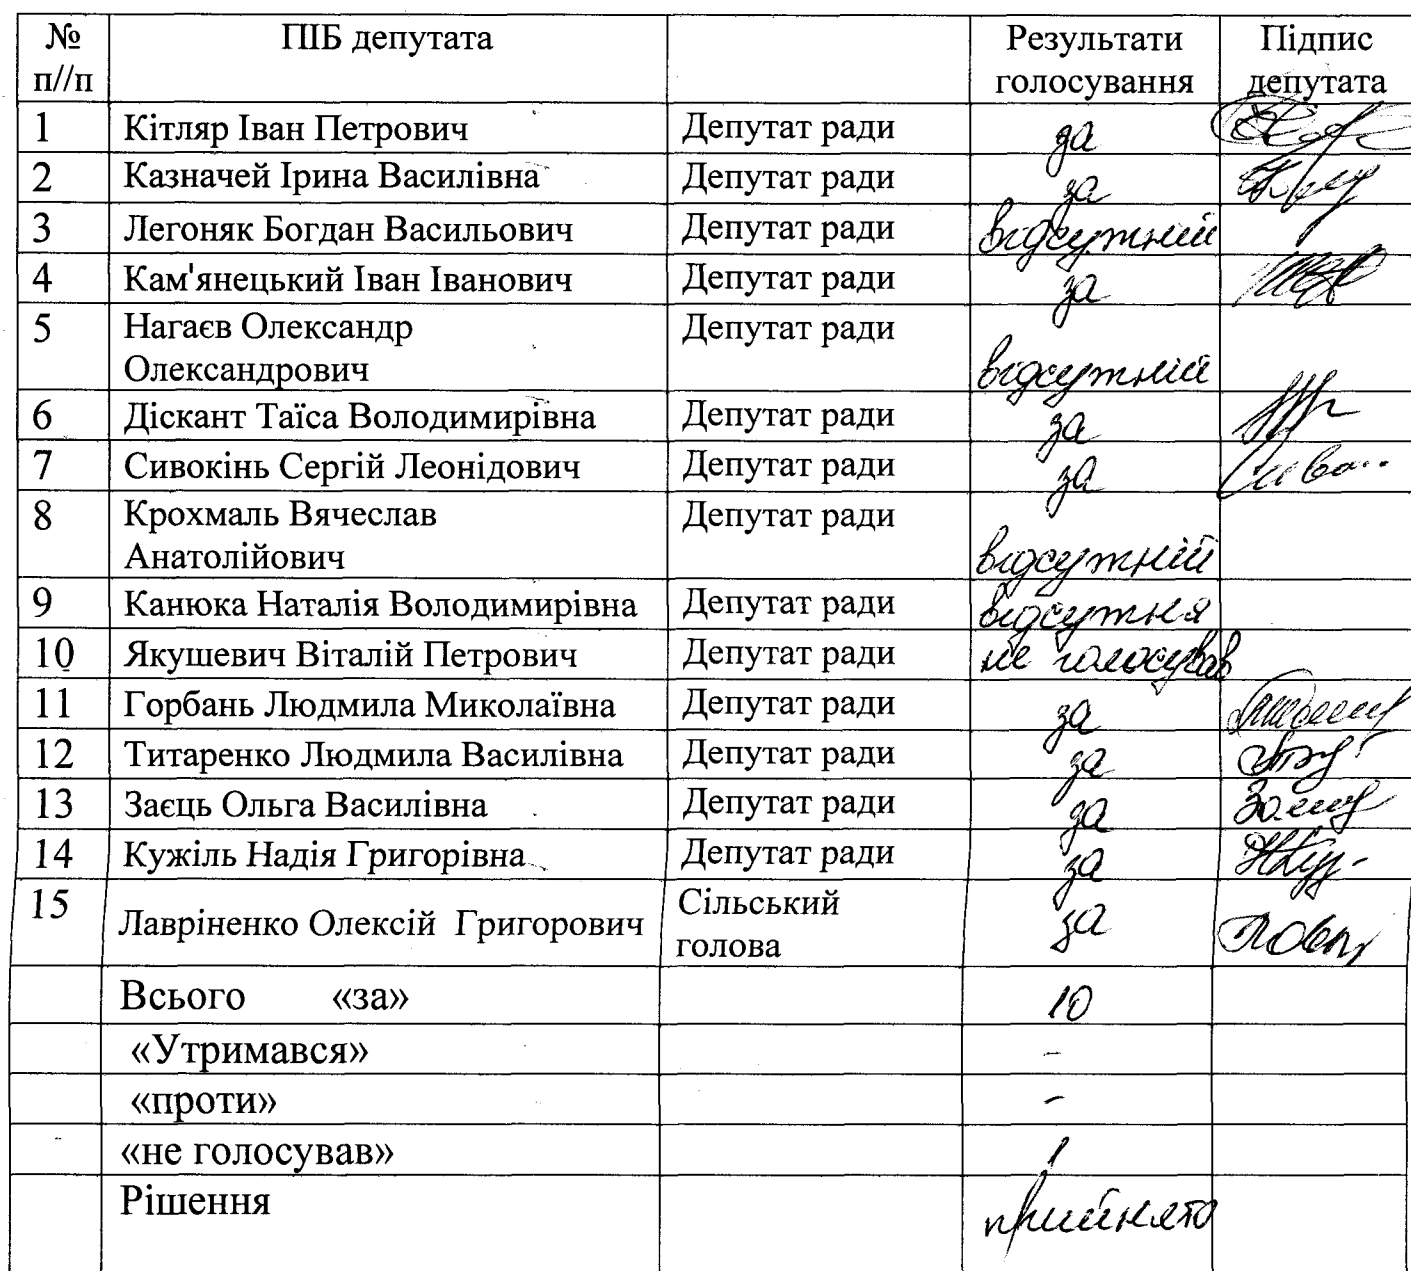 № п//п ПІБ депутата Результати голосування Підпис депутата
1 Кітляр Іван Петрович Депутат ради за
2 Казначей Ірина Василівна Депутат ради за
3 Легоняк Богдан Васильович Депутат ради відсутній
4 Кам'янецький Іван Іванович Депутат ради за
5 Нагаєв Олександр Депутат ради
Олександрович відсутній
6 Діскант Таїса Володимирівна Депутат ради за
7 Сивокінь Сергій Леонідович Депутат ради за
8 Крохмаль Вячеслав Депутат ради
Анатолійович відсутній
9 Канюка Наталія Володимирівна Депутат ради відсутня
10 Якушевич Віталій Петрович Депутат ради не голосував
11 Горбань Людмила Миколаївна Депутат ради за
12 Титаренко Людмила Василівна Депутат ради за
13 Заєць Ольга Василівна Депутат ради за
14 Кужіль Надія Григорівна Депутат ради за
15 Лавріненко Олексій Григорович Сільський голова за
Всього «за» 10
«Утримався» -
«проти» -
«не голосував» 1
Рішення прийнято